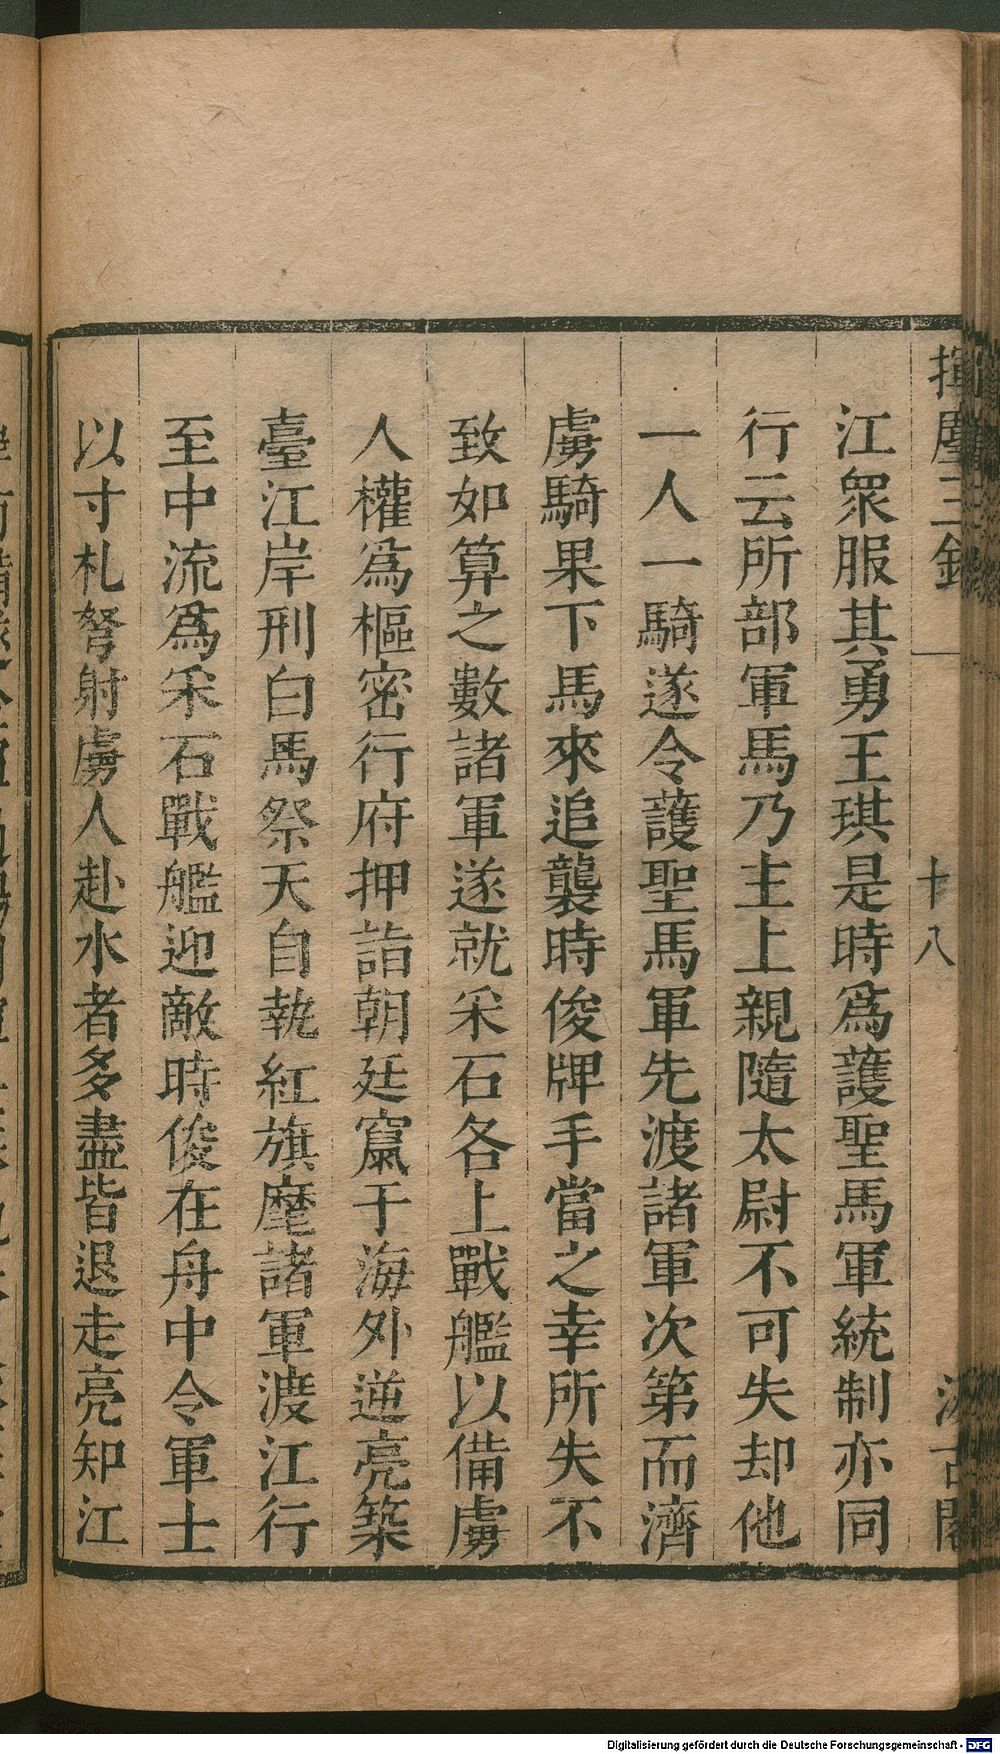 揮麈三錄
十八
汲古閣
江衆服其勇王琪是時爲護聖馬軍統制亦同
行云所部軍馬乃主上親隨太尉不可失却他
一人一騎遂令護聖馬軍先渡諸軍次第而濟
虜騎果下馬來追襲時俊牌手當之幸所失不
致如算之數諸軍遂就采石各上戰艦以備虜
人權爲樞密行府押詣朝廷竄于海外逆亮築
臺江岸刑白馬祭天自執紅旗麾諸軍渡江行
至中流爲采石戰艦迎敵時俊在舟中令軍士
以寸札弩射虜人赴水者多盡皆退走亮知江
Digitalisierung gefördert durch die Deutsche Forschungsgemeinschaft - DFG